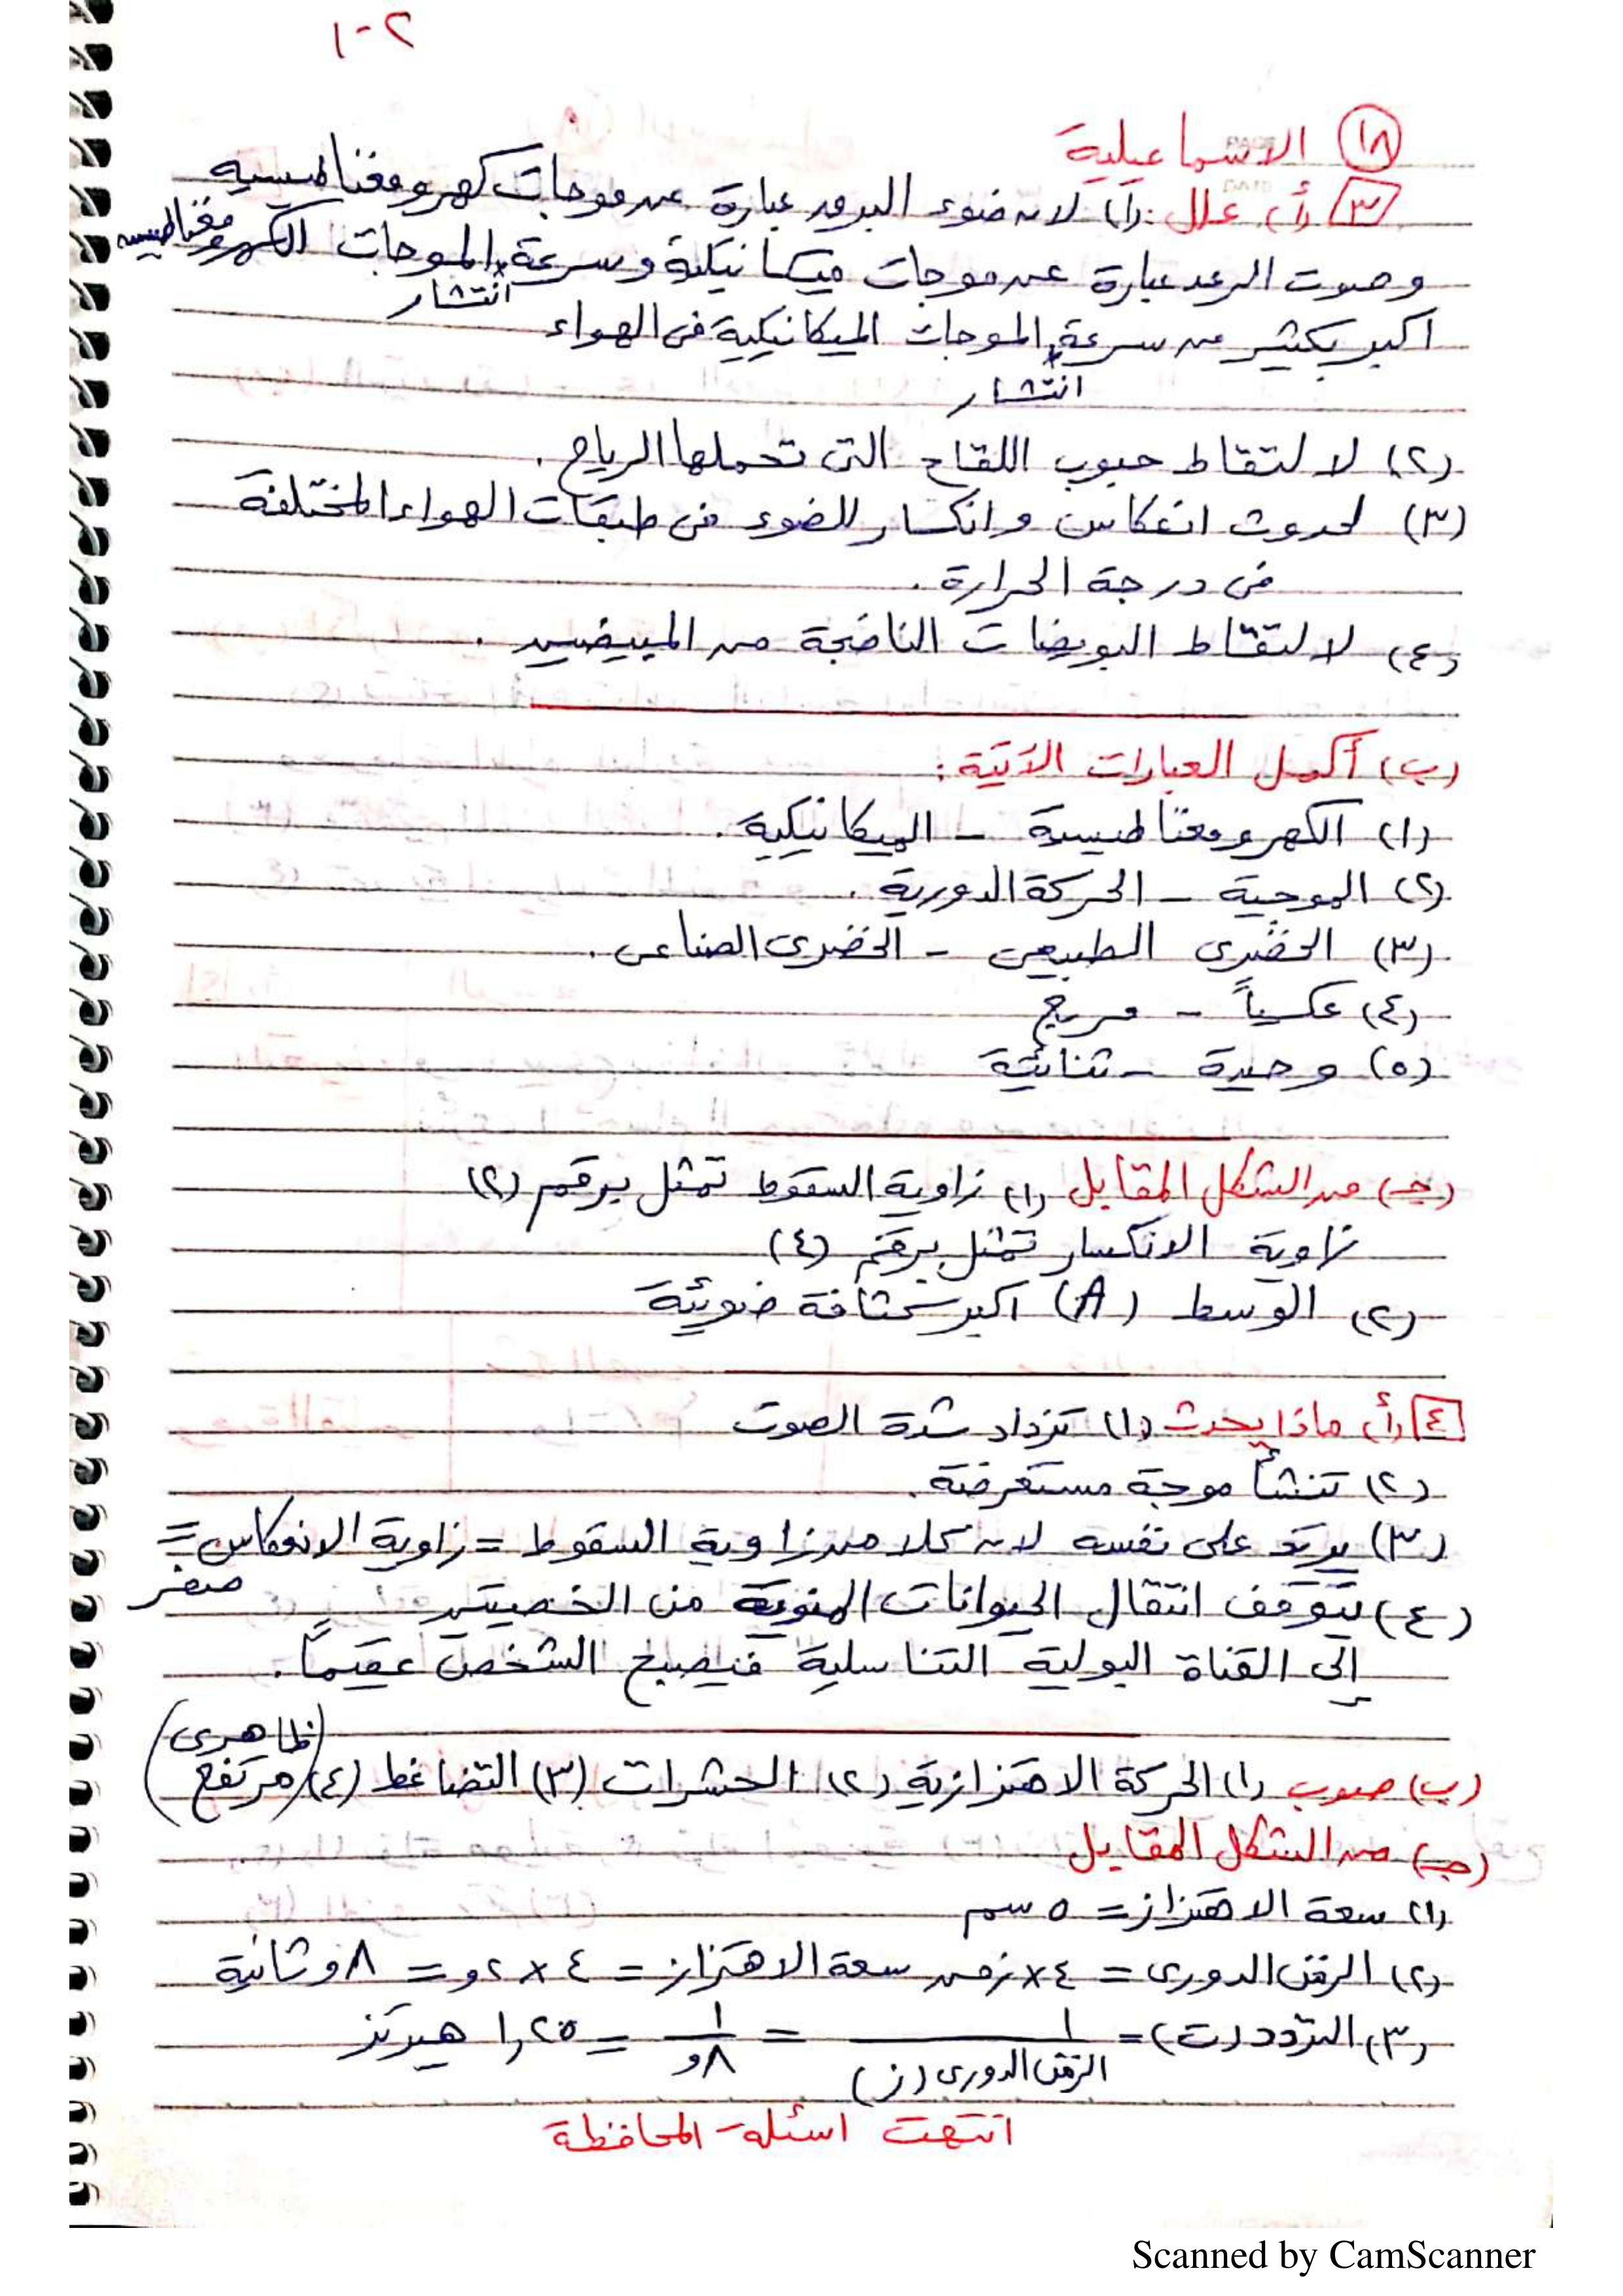 ٢-١
(١٨) الاسماعيلية
[٣] (أ) علل: (١) لان ضوء البرق عبارة عن موجات كهرومغناطيسية
وصوت الرعد عبارة عن موجات ميكانيكية وسرعة انتشار الموجات الكهرومغناطيسيه
اكبر بكثير من سرعة انتشار الموجات الميكانيكية فى الهواء
(٢) لالتقاط حبوب اللقاح التى تحملها الرياح.
(٣) لحدوث انعكاس وانكسار للضوء فى طبقات الهواء المختلفة
فى درجة الحرارة.
(٤) لالتقاط البويضات الناضجة من المبيضين.
(ب) أكمل العبارات الآتية:
(١) الكهرومغناطيسية - الميكانيكية.
(٢) الموجية - الحركة الدورية.
(٣) الخضرى الطبيعى - الخضرى الصناعى.
(٤) عكسياً - مربع
(٥) وحيدة - ثنائية
(جـ) من الشكل المقابل (١) زاوية السقوط تمثل برقم (٢)
زاوية الانكسار تمثل برقم (٤)
(٢) الوسط (A) اكبر كثافة ضوئية
[٤] (أ) ماذا يحدث (١) تزداد شدة الصوت
(٢) تنشأ موجة مستعرضة.
(٣) يرتد على نفسه لان كلا من زاوية السقوط = زاوية الانعكاس = صفر
(٤) يتوقف انتقال الحيوانات المنوية من الخصيتين
إلى القناة البولية التناسلية فيصبح الشخص عقيماً.
(ب) صوب (١) الحركة الاهتزازية (٢) الحشرات (٣) التضاغط (٤) (مرتفع ظاهرى)
(جـ) من الشكل المقابل
(١) سعة الاهتزاز = ٥ سم
(٢) الزمن الدورى = ٤ × زمن سعة الاهتزاز = ٤ × ٢و = ٨و ثانية
(٣) التردد (ت) = ١ / الزمن الدورى (ز) = ١ / ٨و = ١,٢٥ هيرتز
انتهت اسئلة المحافظة
Scanned by CamScanner